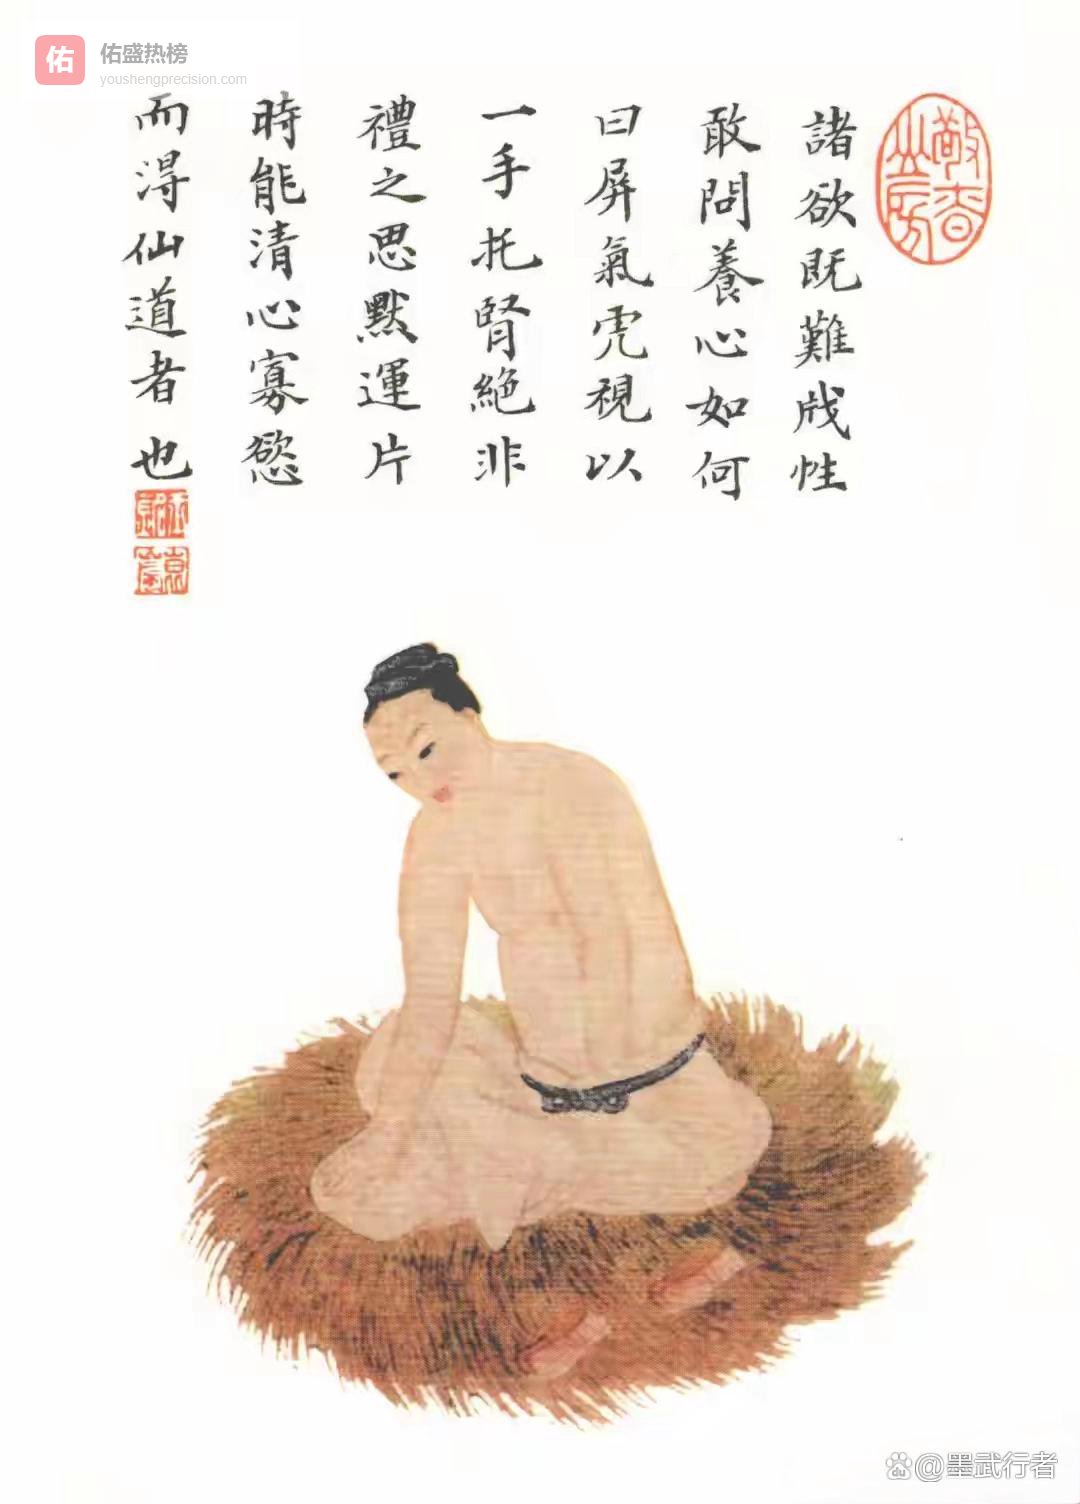 佑
佑盛热榜
youshengprecision.com
諸欲既難戕性
敢問養心如何
曰屏氣虎視以
一手托腎絕非
禮之思默運片
時能清心寡慾
而得仙道者也
du
@墨武行者